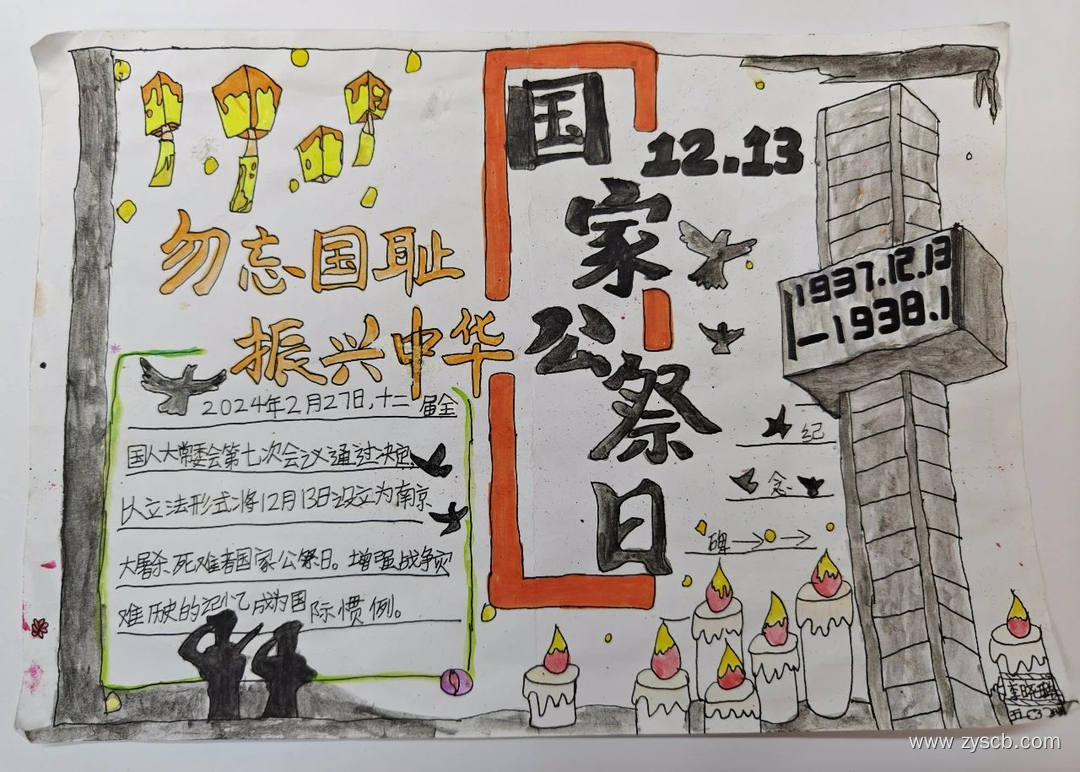 国家公祭日
12.13
勿忘国耻
振兴中华
1937.12.13
-1938.1
2024年2月27日,十二届全
国人大常委会第七次会议通过决定
以立法形式将12月13日设立为南京
大屠杀死难者国家公祭日。增强战争灾
难历史的记忆成为国际惯例。
纪
念
碑
www.zyscb.com